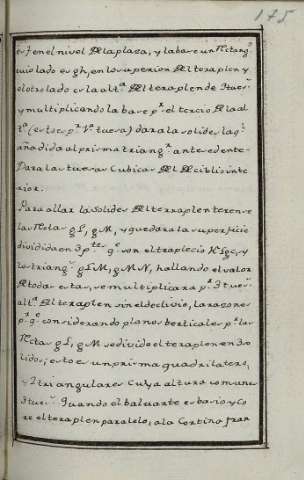 175
es f en el nivel de la plaza, y la base un Rectang.º
cuio lado es gh, en lo superior del terraplen y
el otro lado es la alt.ª del terraplen de 3 tues.s
y multiplicando la base p.r el tercio de la al
t.ª (esto es p.r 1.ª tuesa) dara la solides la q.e
añadida al prisma triang.r antecedente
Dara las tuesas Cubicas del declibis inte
rior.
Para allar la solides del terraplen tiren se
las Rectas gL, gM, y quedara la superficie
dividida en 3 p.tes q.e son el trapecio
los triang.s gLM, gMN, hallando el valor
de todas estas, se multiplicara p.r 3 tues.s
alt.ª del terraplen sin el declivio, la razon es
p.r q.e considerando planos berticales p.r las
Rectas gL, gM se divide el terraplen en 3 so
lidos; esto es un prisma quadrilatero,
y 2 triangulares cuya altura comun es
3 tues.s Quando el baluarte es basio y Co
re el terraplen paralelo, a la Cortina fran